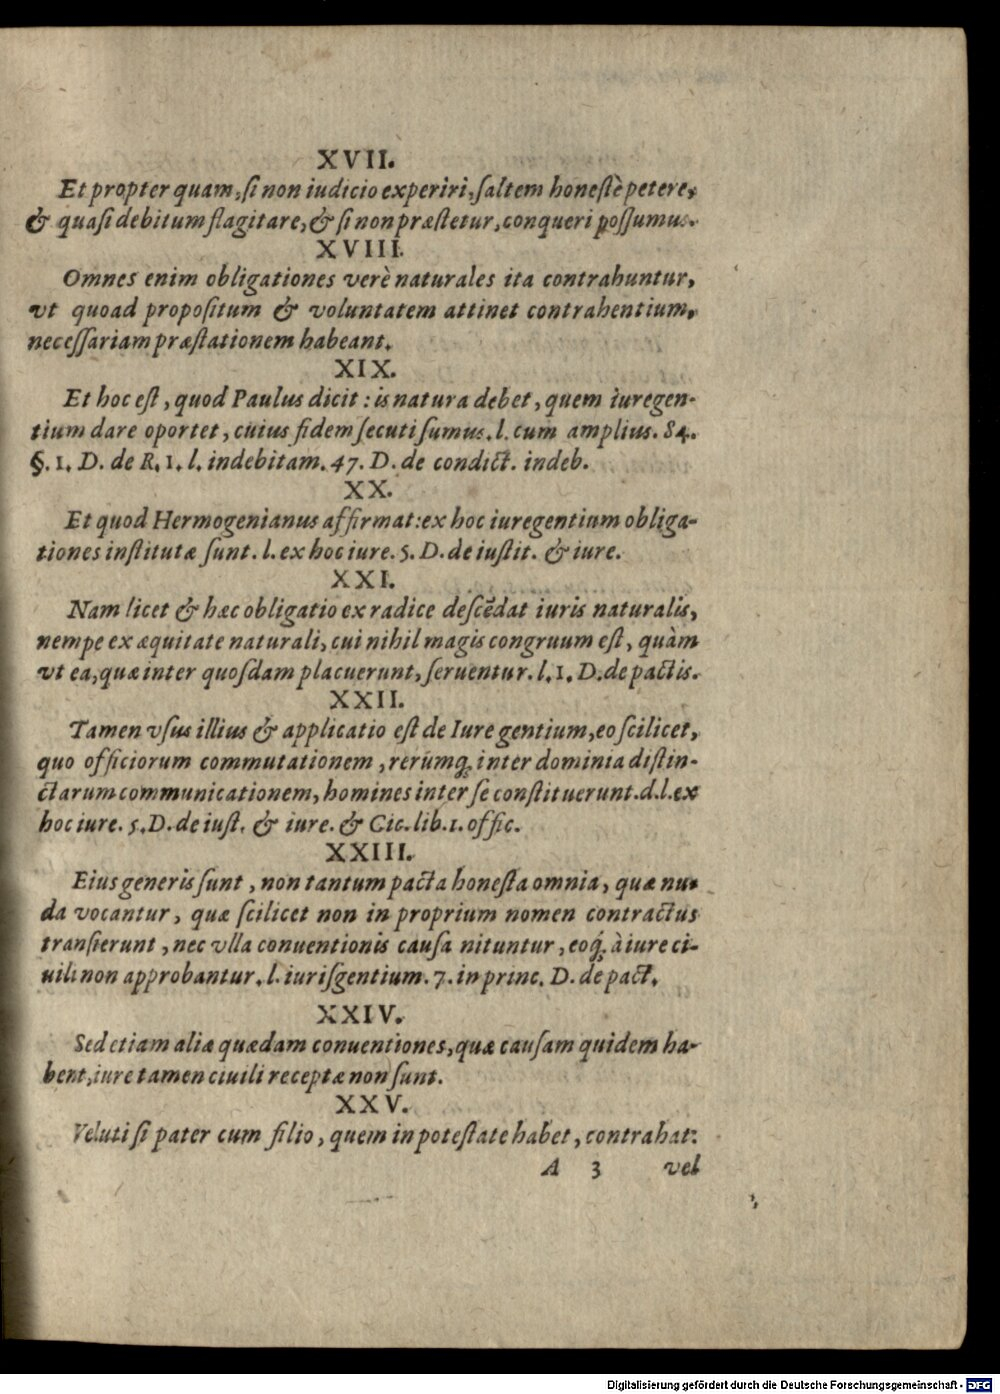 XVII.
Et propter quam, si non iudicio experiri, saltem honestè petere,
& quasi debitum flagitare, & si non præstetur, conqueri possumus.
XVIII.
Omnes enim obligationes verè naturales ita contrahuntur,
vt quoad propositum & voluntatem attinet contrahentium,
necessariam præstationem habeant.
XIX.
Et hoc est, quod Paulus dicit: is natura debet, quem iure gen-
tium dare oportet, cuius fidem secuti sumus. l. cum amplius. 84.
§. 1. D. de R. I. l. indebitam. 47. D. de condict. indeb.
XX.
Et quod Hermogenianus affirmat: ex hoc iure gentium obliga-
tiones institutæ sunt. l. ex hoc iure. 5. D. de iustit. & iure.
XXI.
Nam licet & hæc obligatio ex radice descēdat iuris naturalis,
nempe ex æquitate naturali, cui nihil magis congruum est, quàm
vt ea, quæ inter quosdam placuerunt, seruentur. l. 1. D. de pactis.
XXII.
Tamen vsus illius & applicatio est de Iure gentium, eo scilicet,
quo officiorum commutationem, rerúmq; inter dominia distin-
ctarum communicationem, homines inter se constituerunt. d. l. ex
hoc iure. 5. D. de iust. & iure. & Cic. lib. 1. offic.
XXIII.
Eius generis sunt, non tantum pacta honesta omnia, quæ nu-
da vocantur, quæ scilicet non in proprium nomen contractus
transierunt, nec vlla conuentionis causa nituntur, eoq́; à iure ci-
uili non approbantur. l. iurisgentium. 7. in princ. D. de pact.
XXIV.
Sed etiam aliæ quædam conuentiones, quæ causam quidem ha-
bent, iure tamen ciuili receptæ non sunt.
XXV.
Veluti si pater cum filio, quem in potestate habet, contrahat:
A 3 vel
Digitalisierung gefördert durch die Deutsche Forschungsgemeinschaft - DFG